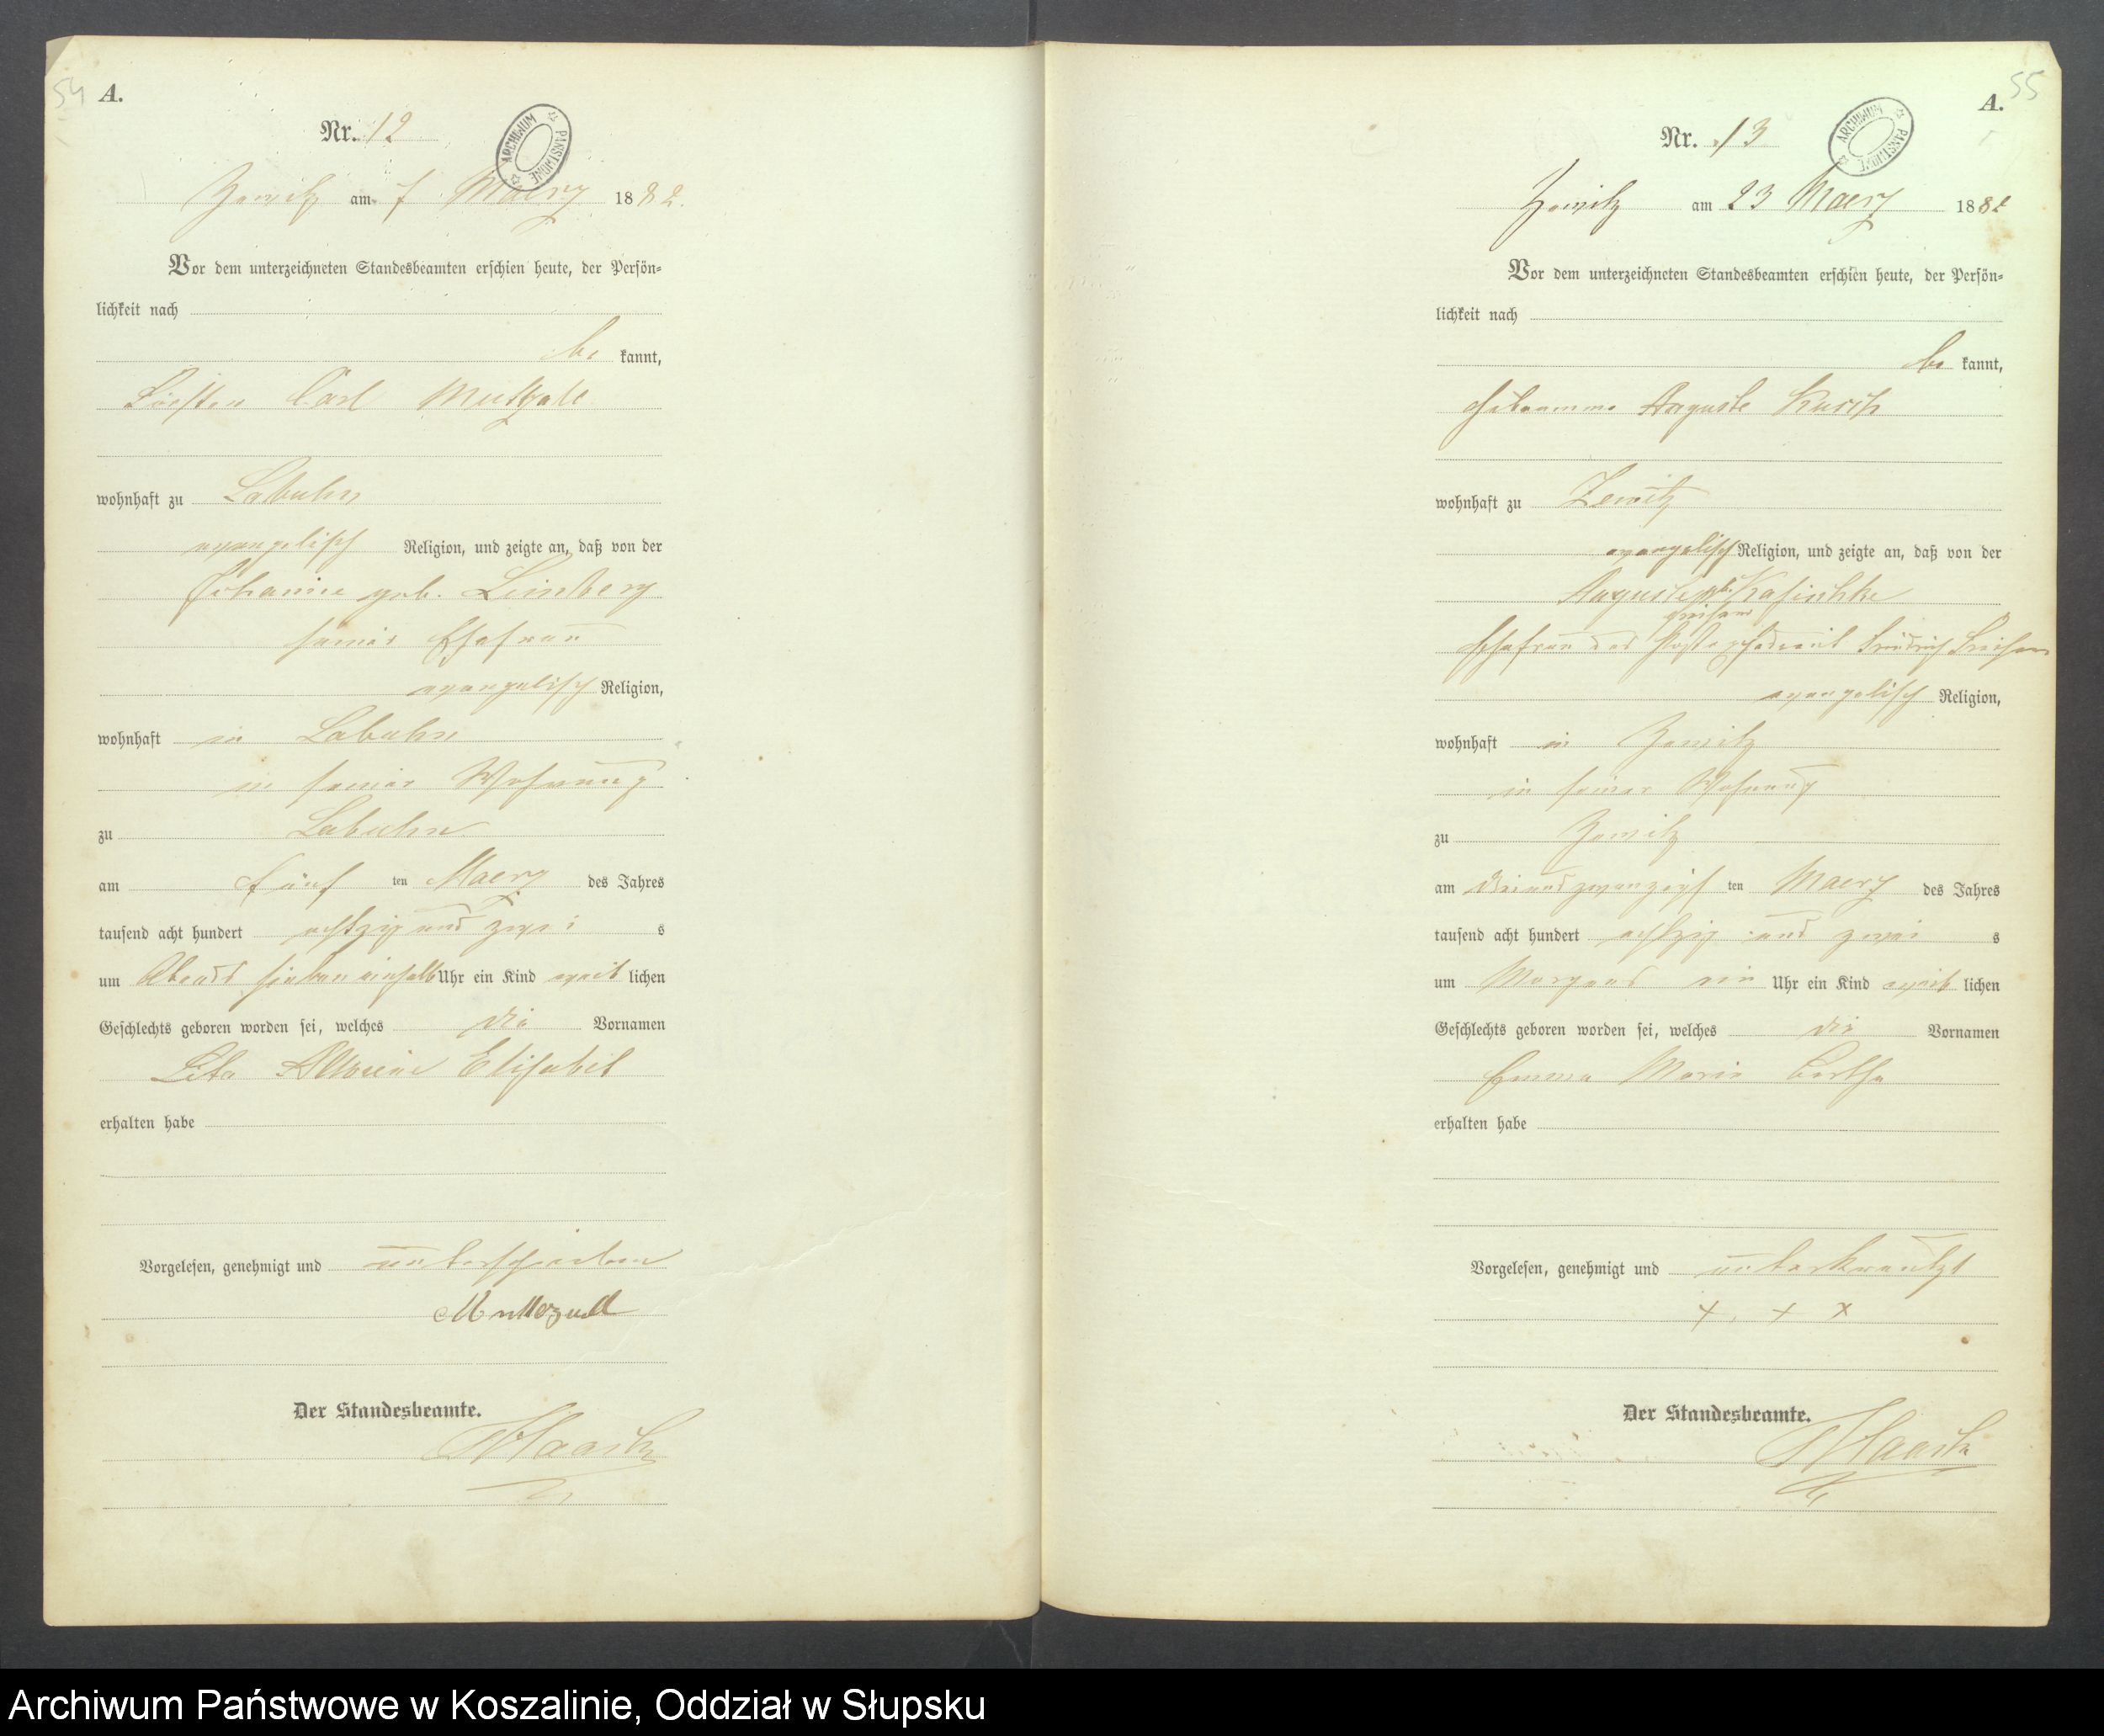 54
A.
Nr. 12
ARCHIWUM PAŃSTWOWE
Zewitz am 7 Maerz 1882.
Vor dem unterzeichneten Standesbeamten erschien heute, der Persön-
lichkeit nach
be kannt,
Carl
wohnhaft zu Labuhn
evangelisch Religion, und zeigte an, daß von der
Johanne geb. Lindberg
seiner Ehefrau
evangelisch Religion,
wohnhaft in Labuhn
in seiner Wohnung
zu Labuhn
am fünf ten Maerz des Jahres
tausend acht hundert achtzig und zwei s
um Abends sieben einhalb Uhr ein Kind weib lichen
Geschlechts geboren worden sei, welches die Vornamen
Elisabet
erhalten habe
Vorgelesen, genehmigt und unterschrieben
Der Standesbeamte.
55
A.
Nr. 13
ARCHIWUM PAŃSTWOWE
Zewitz am 23 Maerz 1882
Vor dem unterzeichneten Standesbeamten erschien heute, der Persön-
lichkeit nach
be kannt,
Hebamme Auguste Kusch
wohnhaft zu Zewitz
evangelisch Religion, und zeigte an, daß von der
Auguste geb. Kasischke
Ehefrau des Friedrich
evangelisch Religion,
wohnhaft in Zewitz
in seiner Wohnung
zu Zewitz
am dreiundzwanzigs ten Maerz des Jahres
tausend acht hundert achtzig und zwei s
um Morgens ein Uhr ein Kind weib lichen
Geschlechts geboren worden sei, welches die Vornamen
Emma Marie Bertha
erhalten habe
Vorgelesen, genehmigt und unterkreutzt
+ + x
Der Standesbeamte.
Archiwum Państwowe w Koszalinie, Oddział w Słupsku